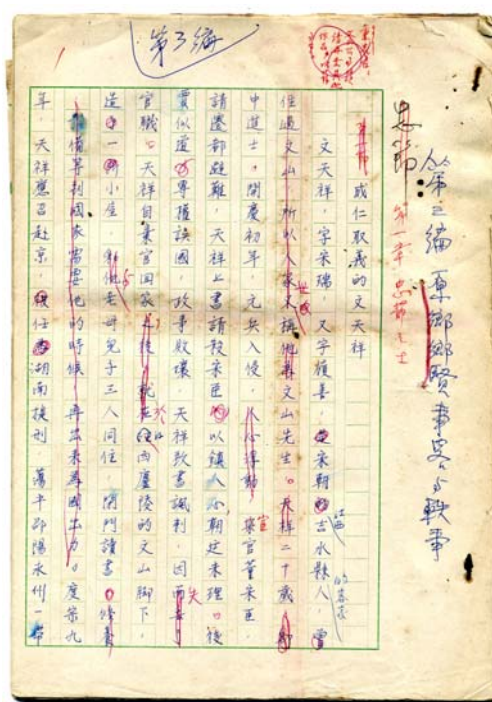 第三編
第三編 原鄉鄉賢事略與軼事
第一章 忠節之士
成仁取義的文天祥
文天祥，字宋瑞，又字履善，宋朝吉水縣人，曾
住過文山，所以人家又稱他為文山先生。天祥二十歲
中進士。開慶初年，元兵入侵，人心浮動，宦官董宋臣
請遷都避難，天祥上書請殺宋臣以鎮人心，朝廷未理。後
賈似道專權誤國，政事敗壞，天祥致書諷刺，因而丟了
官職。天祥自棄官回家之後，就在江西廬陵的文山腳下，
造一所小屋，和他老母兒子三人同住，閉門讀書。修養
準備等到國家需要他的時候，再出來為國出力。度宗九
年，天祥應召赴京，任湖南提刑，蕩平邵陽永州一帶